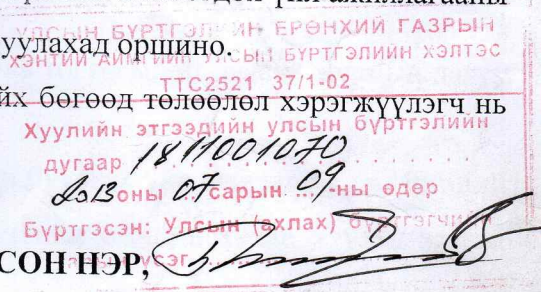 үйл ажиллагааны
УЛСЫН БҮРТГЭЛИЙН ЕРӨНХИЙ ГАЗРЫН
уулахад оршино.
ХЭНТИЙ АЙМГИЙН УЛСЫН БҮРТГЭЛИЙН ХЭЛТЭС
ТТС2521 37/1-02
йх бөгөөд төлөөлөл хэрэгжүүлэгч нь
Хуулийн этгээдийн улсын бүртгэлийн
дугаар 1811001070
2013 оны 07 сарын 09-ны өдөр
Бүртгэсэн: Улсын (ахлах) бүртгэгчийн
СОН НЭР,
үсэг